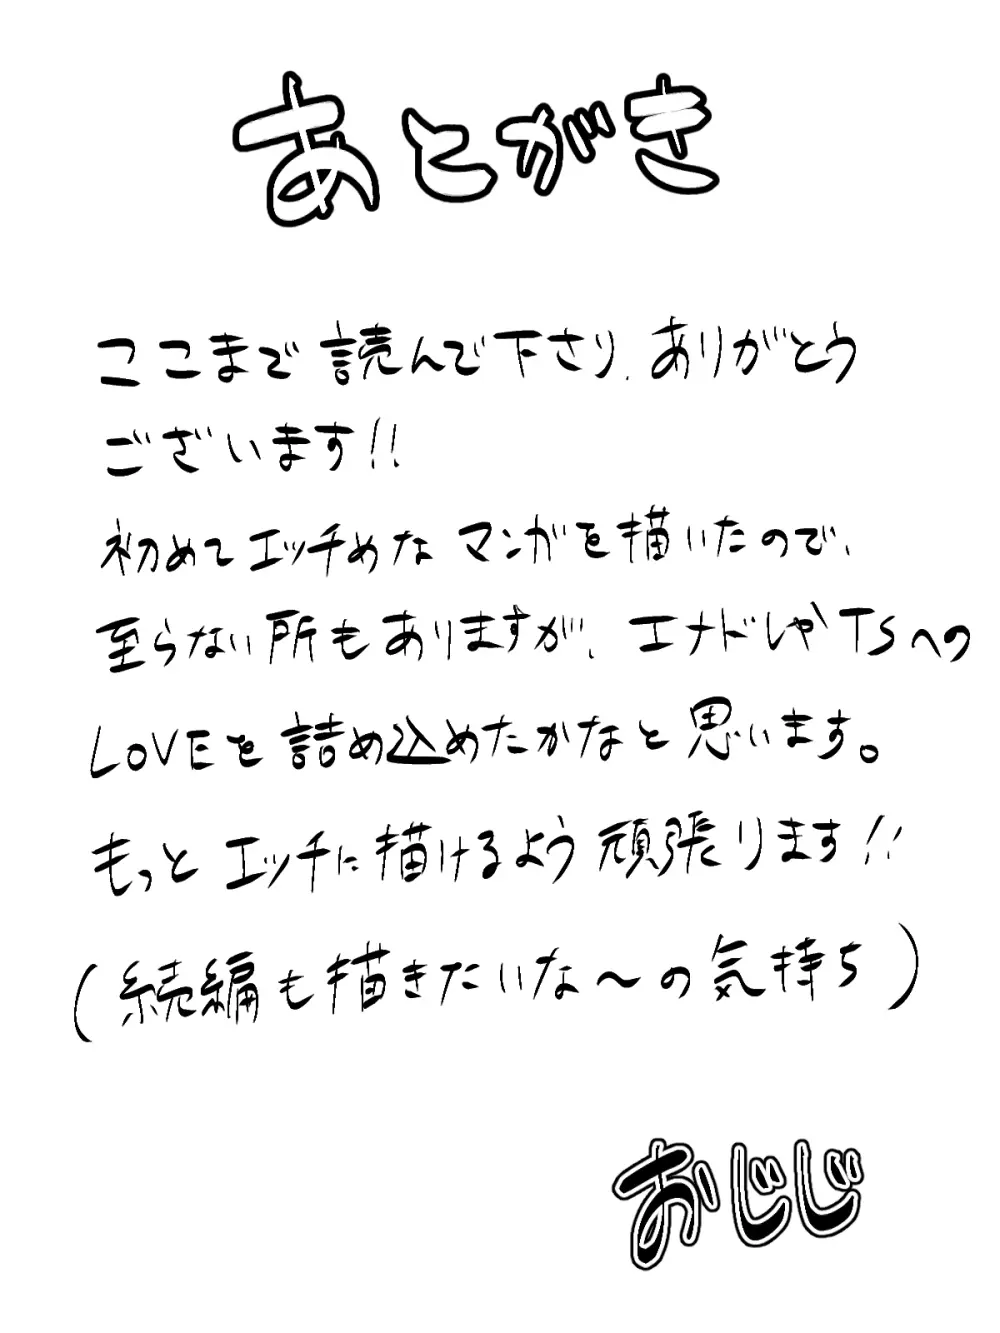 あとがき
ここまで読んで下さり、ありがとう
ございます!!
初めてエッチめなマンガを描いたので、
至らない所もありますが、エナドレやTSへの
LOVEを詰め込めたかなと思います。
もっとエッチに描けるよう頑張ります!!
(続編も描きたいな〜の気持ち)
おじじ